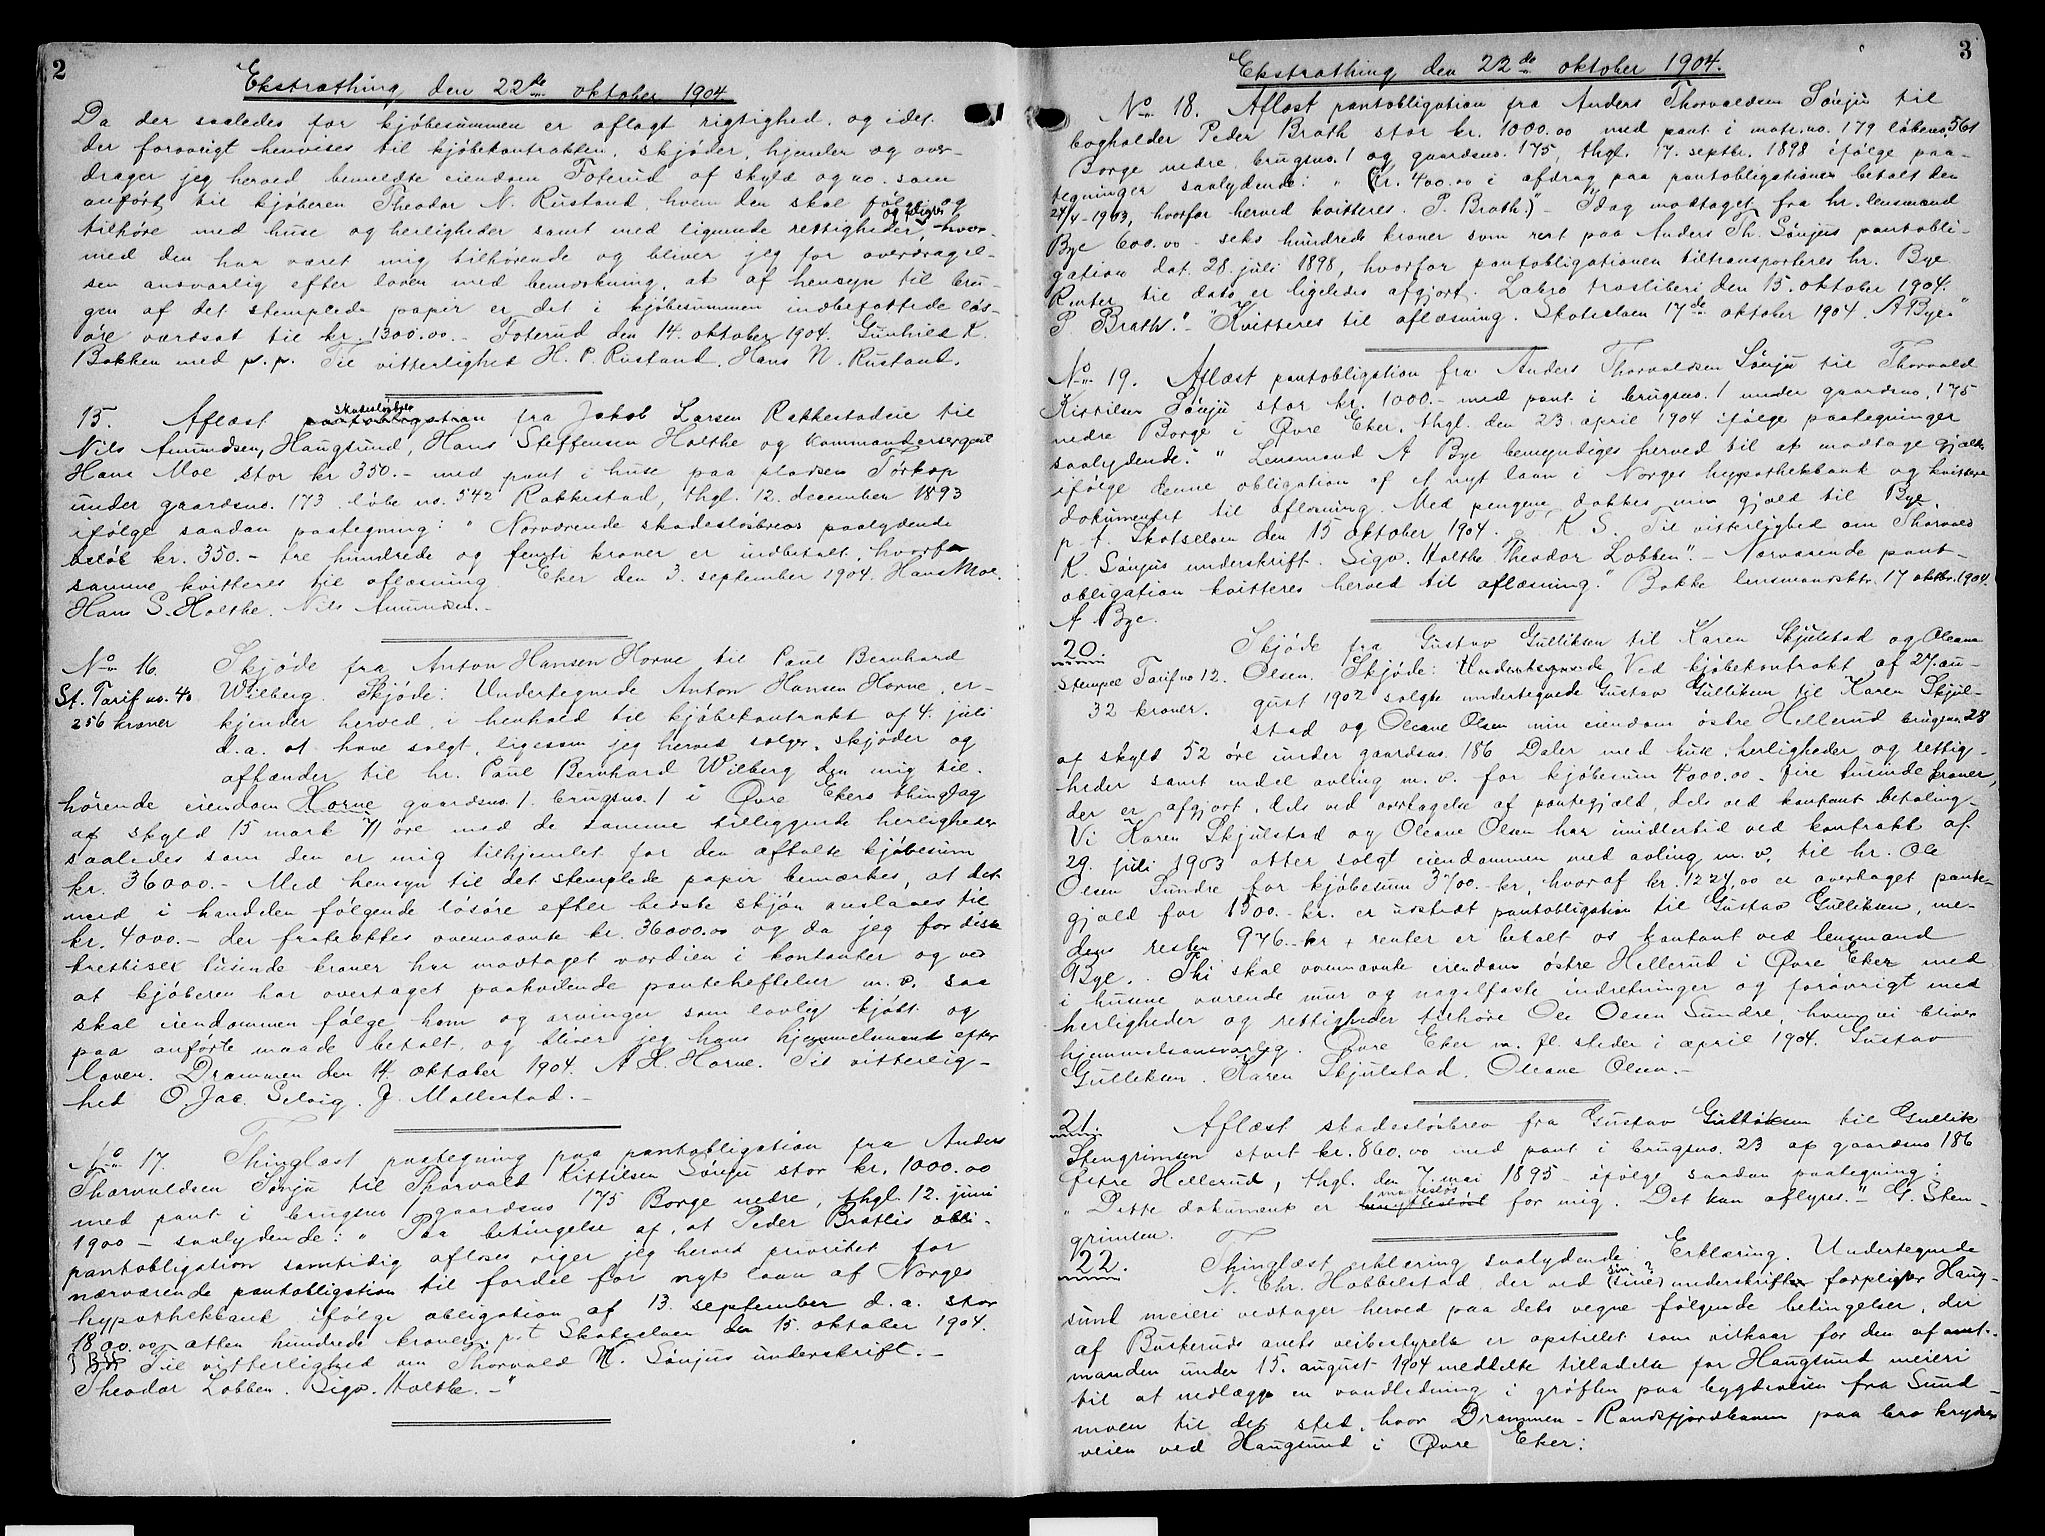 2
Ekstrathing den 22de oktober 1904.
Da der saaledes for kjøbesummen er aflagt rigtighed, og idet
der forøvrigt henvises til kjøbekontrakten, skjøder, hjemler og over-
drager jeg herved bemeldte eiendom Foterud af skyld og no. som
anført til kjøberen Theodor N. Rustand, hvem den skal følge og
tilhøre med huse og herligheder samt med lignende rettigheder og pligter hvor-
med den har været mig tilhørende og bliver jeg for overdragel-
sen ansvarlig efter loven med bemærkning, at af hensyn til bru-
gen af det stemplede papir er det i kjøbesummen indbefattede løs-
øre værdsat til kr. 1300.00.- Foterud den 14. oktober 1904. Gunhild K.
Bakken med p.p. Til vitterlighed H. P. Rustand. Hans N. Rustand.
15. Aflæst skadesløsbrev fra Jakob Larsen Rakkestadeie til
Nils Amundsen, Haugsund, Hans Steffensen Holthe og kommandersergent
Hans Moe stor kr 350.- med pant i huse paa pladsen Torkop
under gaardsno. 173 løbe no. 542 Rakkestad, thgl. 12. december 1893
ifølge saadan paategning: " Nærværende skadesløsbrevs paalydende
beløb kr. 350.- tre hundrede og femti kroner er indbetalt, hvorfor
samme kvitteres til aflæsning. Eker den 3. september 1904. Hans Moe.
Hans S. Holthe. Nils Amundsen.-
No 16. Skjøde fra Anton Hansen Horne til Paul Bernhard
St. Tarif no. 40 Wilberg. Skjøde: Undertegnede Anton Hansen Horne, er-
256 kroner kjender herved i henhold til kjøbekontrakt af 4. juli
d.a. at have solgt, ligesom jeg herved sælger, skjøder og
afhænder til hr. Paul Bernhard Wilberg den mig til-
hørende eiendom Horne gaardsno. 1. brugsno. 1 i Øvre Ekers thinglag
af skyld 15 mark 71 øre med de samme tilliggende herligheder
saaledes som den er mig tilhjemlet for den aftalte kjøbesum
kr. 36000.- Med hensyn til det stemplede papir bemærkes, at det
med i handelen følgende løsøre efter bedste skjøn anslaaes til
kr. 4000.- der fratrækkes ovennævnte kr. 36000.00 og da jeg for disse
trettisex tusinde kroner har modtaget værdien i kontanter og ved
at kjøberen har overtaget paahvilende panteheftelser m.v. saa
skal eiendommen følge ham og arvinger som lovlig kjøbt og
paa anførte maade betalt, og bliver jeg hans hjemmelsmand efter
loven. Drammen den 14 oktober 1904. A H. Horne. Til vitterlig-
hed O. Jac. Selvig. J. Møllestad.-
No 17. Thinglæst paategning paa pantobligation fra Anders
Thorvaldsen Sønju til Thorvald Kittilsen Sønju stor kr. 1000.00
med pant i brugsno 1 gaardsno 175 Borge nedre, thgl. 12. juni
1900 - saalydende: " Paa betingelse af, at Peder Braths obli-
pantobligation samtidig aflæses viger jeg herved prioritet for
nærværende pantobligation til fordel for nyt laan af Norges
hypothekbank ifølge obligation af 13. september d.a. stor
1800.00 atten hundrede kroner. p.t Skotselven den 15. oktober 1904.
Til vitterlighed om Thorvald K. Sønjus underskrift.-
Theodor Lobben. Sigv. Holthe.-"
3
Ekstrathing den 22de oktober 1904.
No 18. Aflæst pantobligation fra Anders Thorvaldsen Sønju til
bogholder Peder Brath stor kr. 1000.00 med pant i matr.no. 179 løbeno. 561
Borge nedre, brugsno. 1 og gaardsno. 175, thgl. 17. septbr. 1898 ifølge paa-
tegninger saalydende: " (Kr. 400.00 i afdrag paa pantobligationen betalt den
24/4-1903, hvorfor herved kvitteres. P. Brath.)"- "Idag modtaget fra hr. lensmand
Bye 600.00 - seks hundrede kroner som rest paa Anders Th. Sønjus pantobli-
gation dat. 28. juli 1898, hvorfor pantobligationen tiltransporteres hr. Bye.
Renter til dato er ligeledes afgjort. Labro træsliberi den 15. oktober 1904.
P. Brath."- "Kvitteres til aflæsning. Skotselven 17de oktober 1904. A Bye."
No 19. Aflæst pantobligation fra Anders Thorvaldsen Sønju til Thorvald
Kittilsen Sønju stor kr. 1000.- med pant i brugsno. 1 under gaardsno. 175
nedre Borge i Øvre Eker, thgl. den 23. april 1904 ifølge paategninger
saalydende: " Lensmand A Bye bemyndiges herved til at modtage gjælden
ifølge denne obligation af et nyt laan i Norges hypothekbank og kvittere
dokumentet til aflæsning. Med pengene dækkes min gjæld til Bye.
p.t. Skotselven den 15 oktober 1904. K. S. Til vitterlighed om Thorvald
K. Sønjus underskrift. Sigv. Holthe Theodor Lobben".- Nærværende pant-
obligation kvitteres herved til aflæsning." Bakke lensmandsktr. 17 oktbr. 1904.
A Bye.
20. Skjøde fra Gustav Gulliksen til Karen Skjulstad og Oleane
Stempel Tarif no 12. Olsen. Skjøde: Ved kjøbekontrakt af 27. au-
32 kroner. gust 1902 solgte undertegnede Gustav Gulliksen til Karen Skjul-
stad og Oleane Olsen min eiendom østre Hellerud brugsno. 28
af skyld 52 øre under gaardsno. 186 Daler med huse, herligheder og rettig-
heder samt endel avling m.v. for kjøbesum 4000.00 - fire tusinde kroner,
der er afgjort, dels ved overtagelse af pantegjæld, dels ved kontant betaling.
Vi Karen Skjulstad og Oleane Olsen har imidlertid ved kontrakt af
29. juli 1903 atter solgt eiendommen med avling m.v. til hr. Ole
Olsen Sundre for kjøbesum 3700.- kr, hvoraf kr. 1224,00 er overtaget pante-
gjæld for 1500.- kr. er udstedt pantobligation til Gustav Gulliksen, me-
dens resten 976.- kr + renter er betalt os kontant ved lensmand
Bye. Thi skal ovennævnte eiendom østre Hellerud i Øvre Eker med
i husene værende mur og nagelfaste indretninger og forøvrigt med
herligheder og rettigheder tilhøre Ole Olsen Sundre, hvem vi bliver
hjemmelsansvarlig. Øvre Eker m. fl. steder i april 1904. Gustav
Gulliksen. Karen Skjulstad. Oleane Olsen.-
21. Aflæst skadesløsbrev fra Gustav Gulliksen til Gullik
Stengrimsen stort kr. 860.00 med pant i brugsno. 23 af gaardsno 186
østre Hellerud, thgl. den 7. mai 1895 - ifølge saadan paategning:
"Dette dokument er magtesløs for mig. Det kan aflyses.-" G. Sten-
grimsen.
22. Thinglæst erklæring saalydende: Erklæring. Undertegnede
N. Chr. Hobbelstad, der ved sin? (sine) underskrift forpligter Haug-
sund meieri vedtager herved paa dets vegne følgende betingelser, der
af Buskeruds amts veibestyrelse er opstillet som vilkaar for den af amt-
manden under 15. august 1904 meddelte tilladelse for Haugsund meieri
til at nedlægge en vandledning i grøften paa bygdeveien fra Sund-
moen til det sted, hvor Drammen-Randsfjordbanen paa bro krydser
veien ved Haugsund i Øvre Eker: